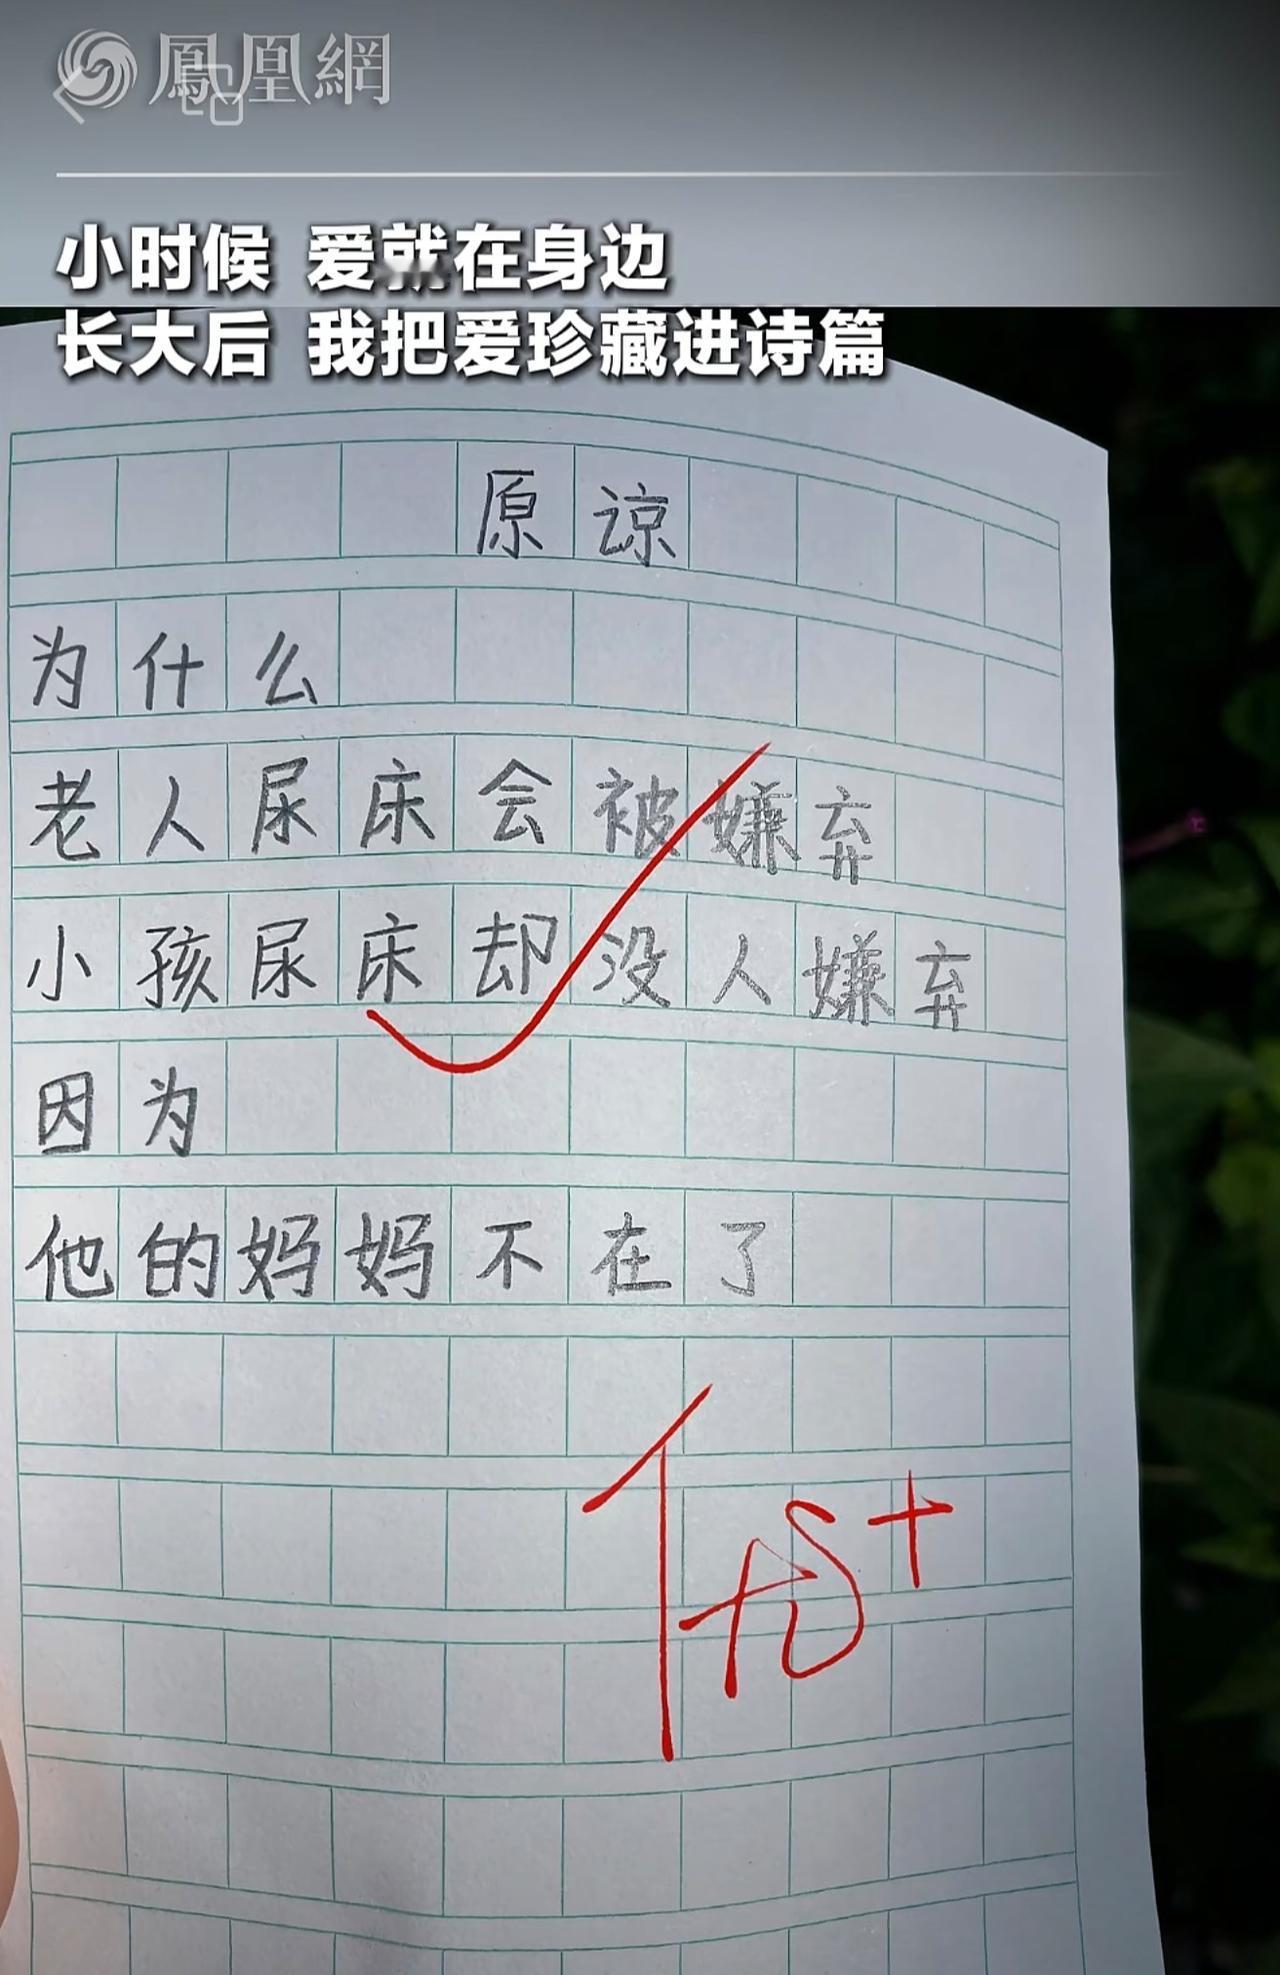 鳳凰網
小时候 爱就在身边
长大后 我把爱珍藏进诗篇
原谅
为什么
老人尿床会被嫌弃
小孩尿床却没人嫌弃
因为
他的妈妈不在了
优+